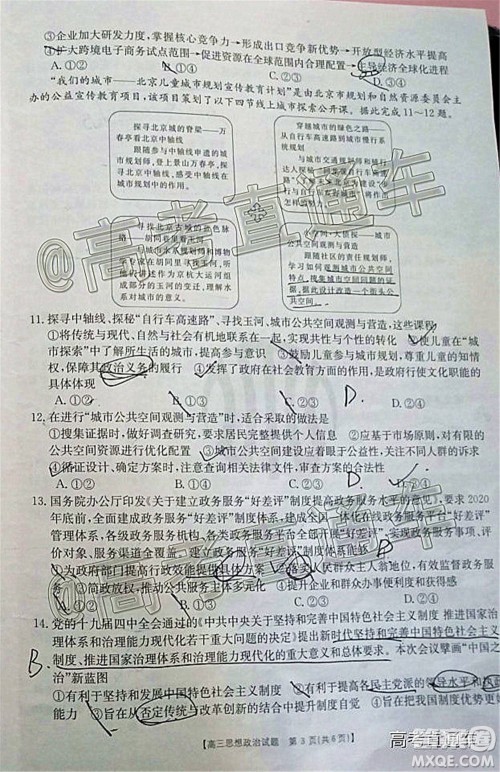 ③企业加大研发力度，掌握核心竞争力→形成出口竞争新优势→开放型经济水平提高
④扩大跨境电子商务试点范围→促进资源在全球范围内合理配置→主导经济全球化进程
A.①② B.①④ C.②③ D.③④
“我们的城市——北京儿童城市规划宣传教育计划”是由北京市规划和自然资源委员会主
办的公益宣传教育项目，该项目策划了以下四节线上城市探索公开课。据此完成11～12题。
探寻北京城的脊梁——万
春亭看北京中轴线
跟随参与中轴线申遗的城
市规划师，登上景山万春亭，探
寻北京中轴线，感受中轴线在
城市规划中的作用。
穿越城市的绿色之路——
从自行车高速路到城市慢行系
统规划
与城市交通规划师一起探
讨为什么我们要在北京建造一
寻找北京古城的蓝色脉
络——胡同看里看玉河
跟随城市规划师和博物
学专家在胡同里寻找玉河，听
他们讲述作为京杭大运河组
成部分的玉河的变迁，理解水
系对城市的意义。
跟随社区的责任规划师，
学习如何观测城市公共空间
特征，搜集城市空间问题的证
据，据此设计改造一个街头公
共空间。
11. 探寻中轴线、探秘“自行车高速路”、寻找玉河、城市公共空间观测与营造，这些课程
①将传统与现代、自然与社会有机地联系在一起，实现可持续发展 ②可使儿童在“城
市探索”中了解所生活的城市，提高参与意识 ③鼓励儿童参与城市规划和城市建设，
确保其政治义务的履行 ④发挥了政府在社会教育方面的作用，是政府行使文化职能的
具体体现
A.①② B.①③ C.②③ D.②④
12. 在进行“城市公共空间观测与营造”时，适合采取的做法是
①搜集证据时，做好设计研究，要求居民完整提供个人信息 ②应基于市场对城市的
公共空间资源进行优化配置 ③空间改造应着眼于公益性，关注不同人群需求 ④设
计后确证，确定方案，注意查询相关法律文件，审查方案的合法性
A.①② B.①③ C.②④ D.③④
13. 国务院办公厅印发《关于建立政务服务“好差评”制度提高政务服务水平的意见》，要求2020
年底前，全面建成政务服务“好差评”制度体系，建成全国一体化在线政务服务平台“好差评”
管理体系，各级政务服务机构、各类政务服务平台全部开展“好差评”，实现政务服务事项、评
价对象、服务渠道全覆盖。建立政务服务“好差评”制度体系能够
①为政府部门提高行政效能提供具体方案 ②落实人民群众主人翁地位，有效监督政务服
务 ③简政放权，推动公共服务主体多元化 ④提升企业和群众办事便利度和获得感
A.①② B.①③ C.②④ D.③④
14. 党的十九届四中全会通过的《中共中央关于坚持和完善中国特色社会主义制度 推进国
家治理体系和治理能力现代化若干重大问题的决定》提出新时代坚持和完善中国特色社会主义
制度、推进国家治理体系和治理能力现代化的重大意义和总体要求。本次会议擘画“中国之
治”新蓝图
①有利于坚持和发展中国特色社会主义制度 ②有利于提高各民主党派的领导水平和
④旨在从否定传统与制度创新的结合中提升制度自觉
【高三思想政治试题 第3页(共6页)】
B.
D.
@高考直通车
高考直通车
MXQE.COM